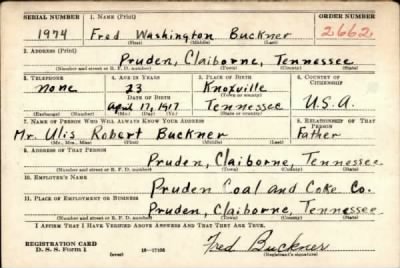 SERIAL NUMBER 1. NAME (Print) ORDER NUMBER
1974 Fred Washington Buckner 2662
(First) (Middle) (Last)
2. ADDRESS (Print)
Pruden, Claiborne, Tennessee
(Number and street or R. F. D. number) (Town) (County) (State)
3. TELEPHONE 4. AGE IN YEARS 5. PLACE OF BIRTH 6. COUNTRY OF CITIZENSHIP
none 23 Knoxville
DATE OF BIRTH (Town or county)
April 17, 1917 Tennessee U.S.A.
(Exchange) (Number) (Mo.) (Day) (Yr.) (State or country)
7. NAME OF PERSON WHO WILL ALWAYS KNOW YOUR ADDRESS 8. RELATIONSHIP OF THAT PERSON
Mr. Ulis Robert Buckner Father
(Mr., Mrs., Miss) (First) (Middle) (Last)
9. ADDRESS OF THAT PERSON
Pruden, Claiborne, Tennessee
(Number and street or R. F. D. number) (Town) (County) (State)
10. EMPLOYER'S NAME
Pruden Coal and Coke Co.
11. PLACE OF EMPLOYMENT OR BUSINESS
Pruden, Claiborne, Tennessee
(Number and street or R. F. D. number) (Town) (County) (State)
I AFFIRM THAT I HAVE VERIFIED ABOVE ANSWERS AND THAT THEY ARE TRUE.
REGISTRATION CARD
D. S. S. Form 1 (over) Fred Buckner
(Registrant's signature)